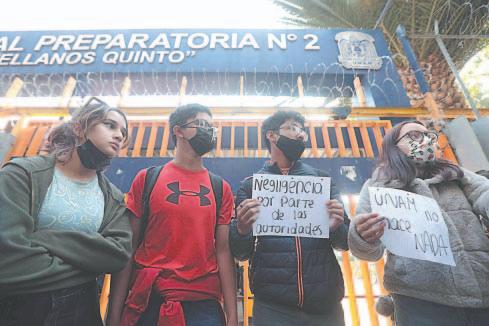 AL PREPARATORIA N° 2
ELLANOS QUINTO"
UNDER ARMOUR
Negligéncia
por parte
de las
autoridades
UNAM no
hace
NADA